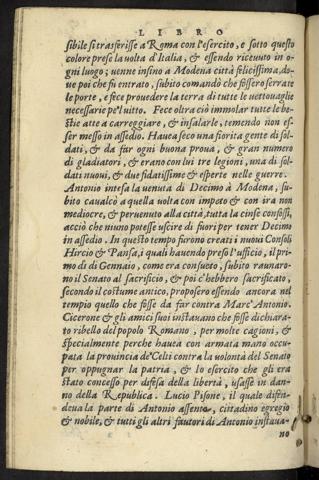 LIBRO
sibile si trasferisse a Roma con l'esercito, e sotto questo
colore prese la volta d'Italia, & essendo ricevuto in o-
gni luogo; uenne insino a Modena città felicissima, do-
ue poi che fù entrato, subito comandò che fossero serrate
le porte, e fece prouedere la terra di tutte le uettouaglie
necessarie pe'l uitto. Fece oltra ciò immolar tutte le bo-
stie atte a carreggiare, & insalarle, temendo non es-
ser messo in assedio. Hauea seco una fiorita gente di sol-
dati, & da far ogni buona proua, & gran numero
di gladiatori, & erano con lui tre legioni, una di sol-
dati nuoui, & due fidatissime & esperte nelle guerre.
Antonio intesa la uenuta di Decimo à Modena, su-
bito caualcò a quella uolta con impeto & con ira non
mediocre, & peruenuto alla città, tutta la cinse con fossi,
acciò che niuno potesse uscire di fuori per tener Decimo
in assedio. In questo tempo furono creati i nuoui Consoli
Hircio & Pansa, i quali hauendo preso l'ufficio, il pri-
mo dì di Gennaio, come era consueto, subito raunaro-
no il Senato al sacrificio, & poi c'hebbero sacrificato,
secondo il costume antico, proposero essendo ancora nel
tempio quello che fosse da far contra Marc'Antonio.
Cicerone & gli amici suoi instauano che fosse dichiara-
to ribello del popolo Romano, per molte cagioni, &
spicialmente perche hauea con armata mano occu-
pata la prouincia de'Celti contra la uolontà del Senato
per oppugnar la patria, & lo esercito che gli era
stato concesso per difesa della libertà, usasse in dan-
no della Republica. Lucio Pisone, il quale difen-
deua la parte di Antonio assente, cittadino egregio
& nobile, & tutti gli altri fautori di Antonio instaua-
no